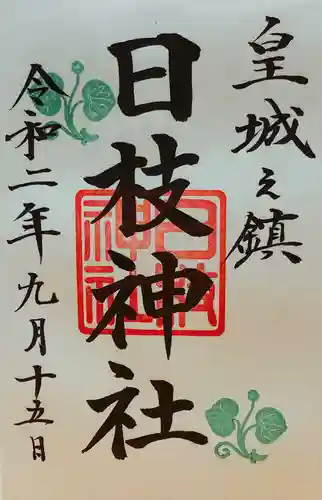 皇城之鎮
日枝神社
日枝神社
令和二年九月十五日